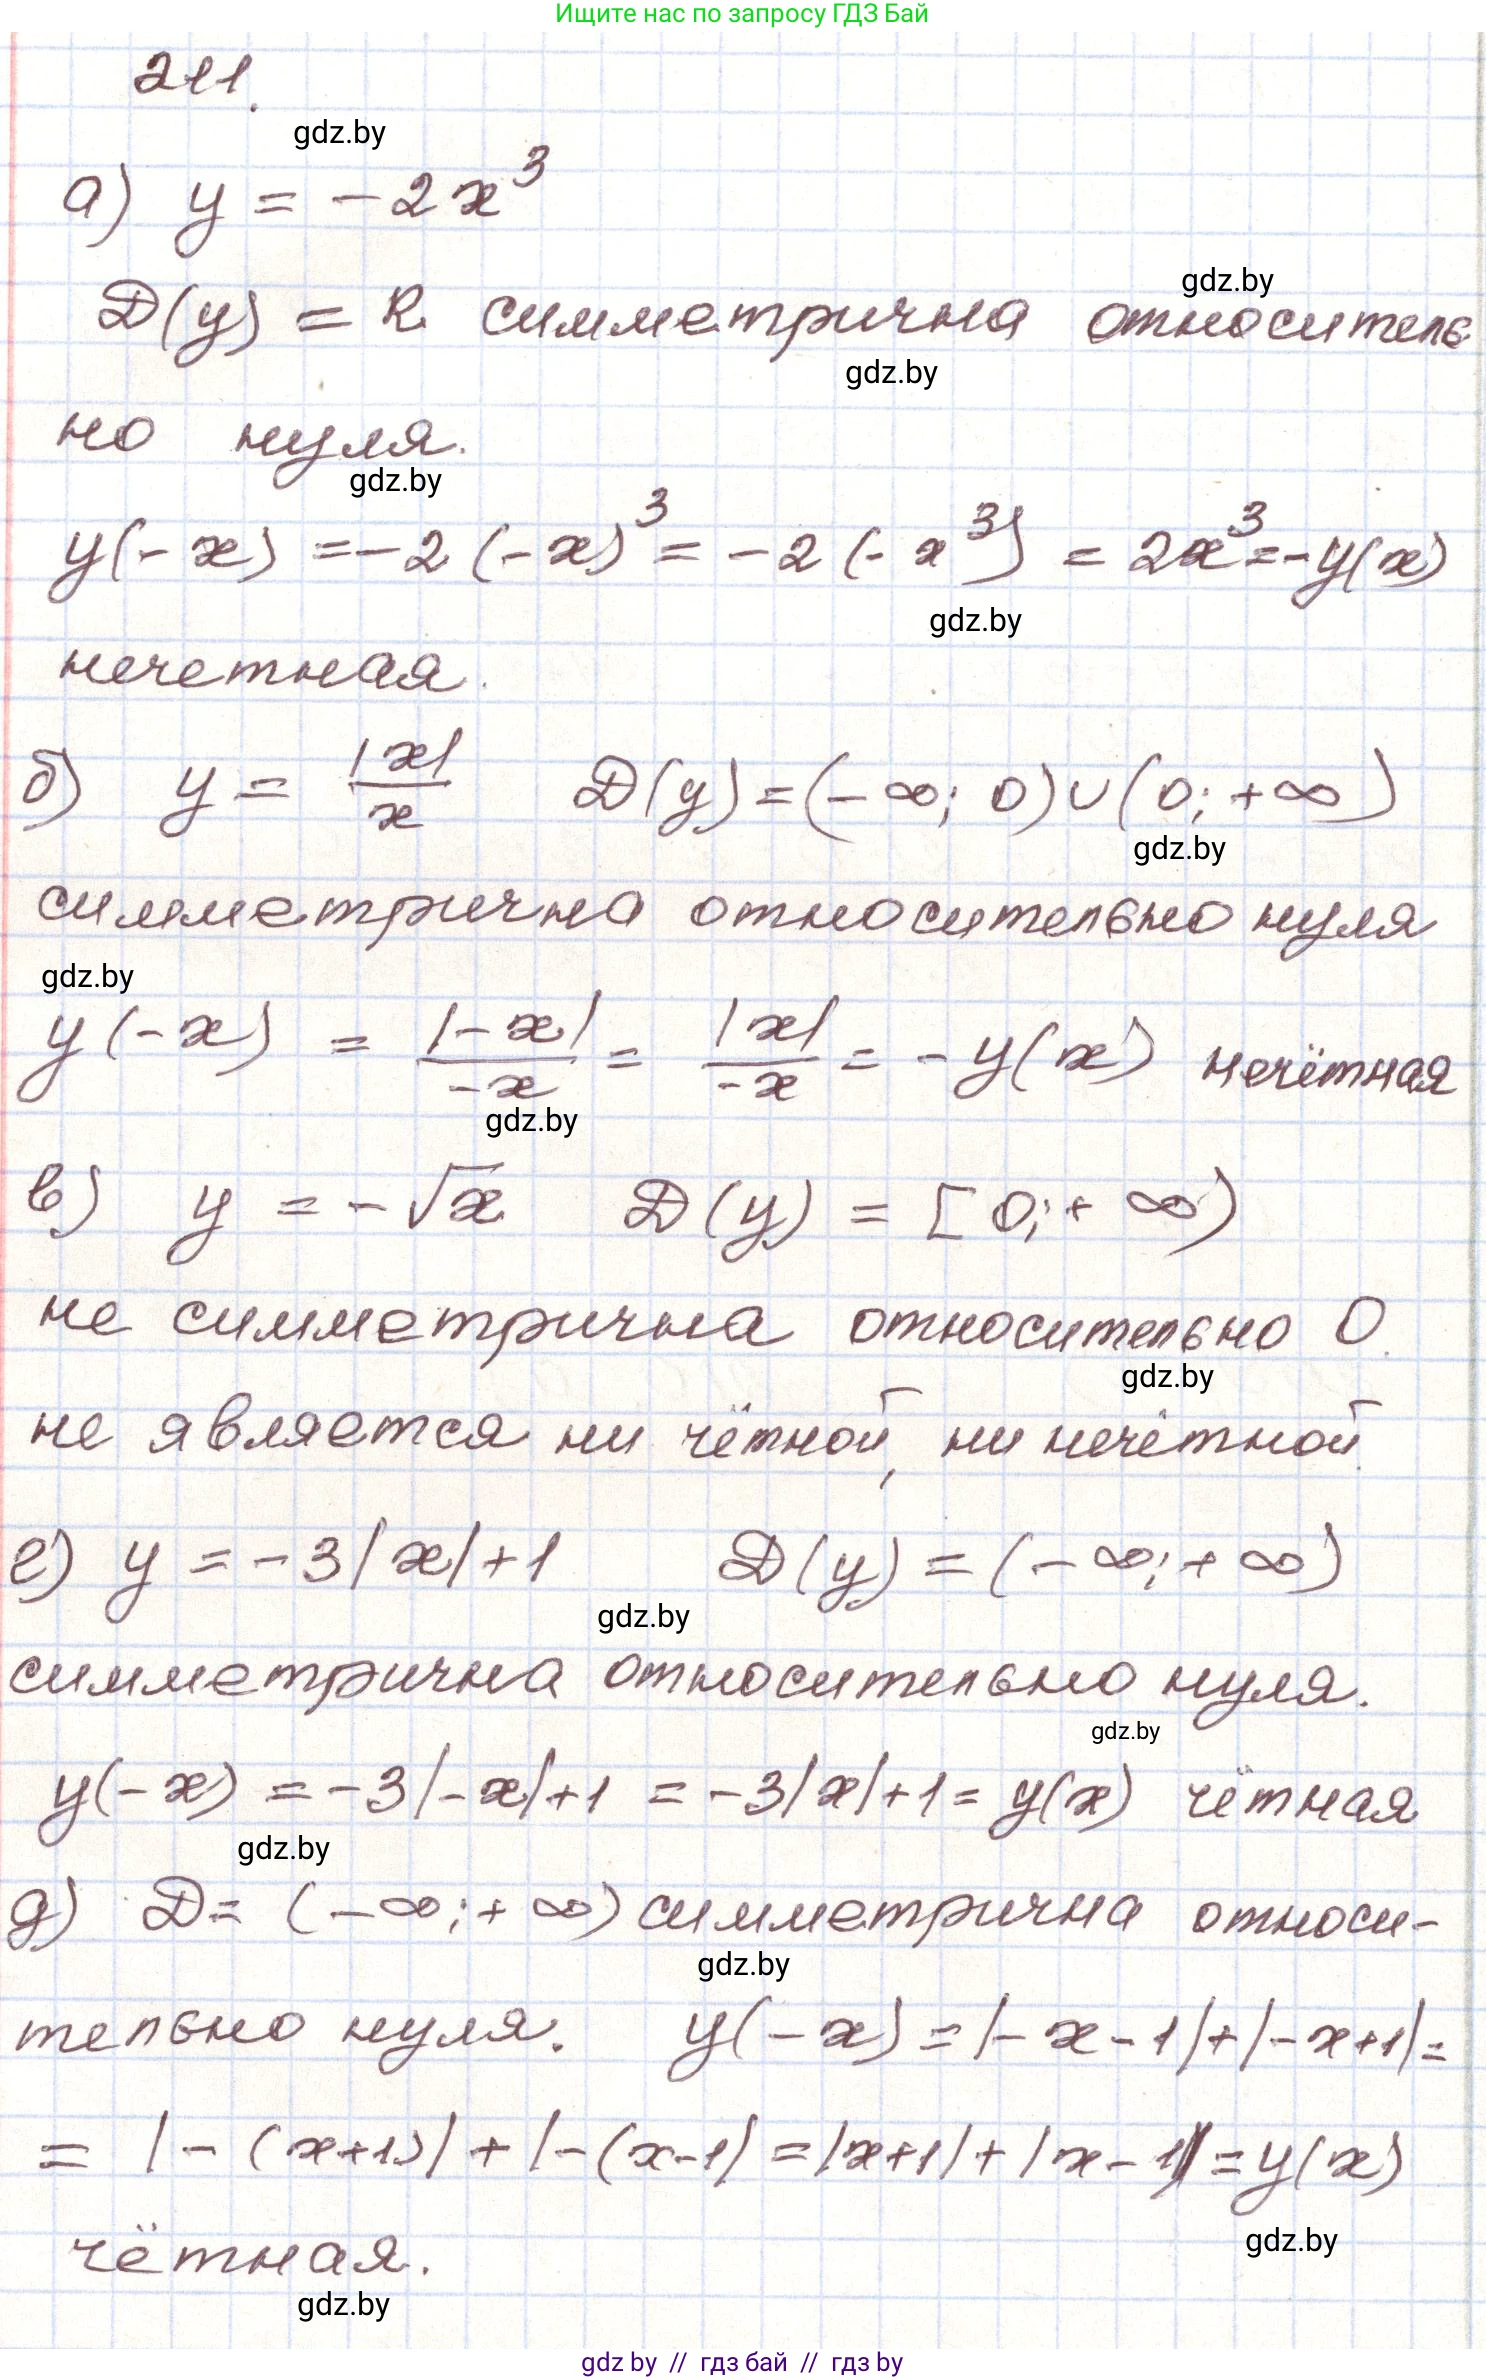 Ищите нас по запросу ГДЗ Бай
211.
gdz.by
а) y = -2x³
gdz.by
D(y) = R симметрична относитель
gdz.by
но нуля.
gdz.by
y(-x) = -2(-x)³ = -2(-x³) = 2x³ = -y(x)
gdz.by
нечетная.
б) y = |x|/x D(y) = (-∞; 0)∪(0; +∞)
gdz.by
симметрична относительно нуля
gdz.by
y(-x) = |-x|/-x = |x|/-x = -y(x) нечётная
gdz.by
в) y = -√x D(y) = [0; +∞)
не симметрична относительно 0.
gdz.by
не является ни чётной, ни нечётной.
г) y = -3|x|+1 D(y) = (-∞; +∞)
gdz.by
симметрична относительно нуля.
gdz.by
y(-x) = -3|-x|+1 = -3|x|+1 = y(x) чётная
gdz.by
д) D = (-∞; +∞) симметрична относи-
gdz.by
тельно нуля. y(-x) = |-x-1|+|-x+1| =
= |-(x+1)| + |-(x-1| = |x+1| + |x-1| = y(x)
gdz.by
чётная.
gdz.by
gdz.by // гдз бай // гдз by